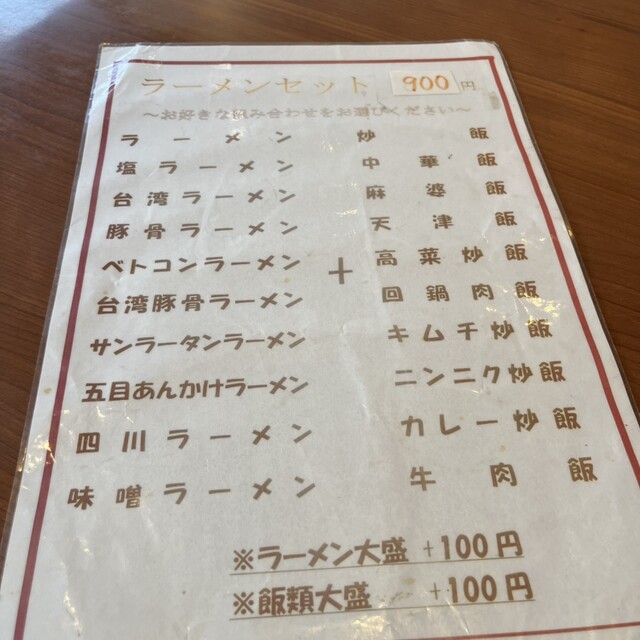 ラーメンセット 900円
～お好きな組み合わせをお選びください～
ラーメン 炒飯
塩ラーメン 中華飯
台湾ラーメン 麻婆飯
豚骨ラーメン 天津飯
ベトコンラーメン + 高菜炒飯
台湾豚骨ラーメン 回鍋肉飯
サンラータンラーメン キムチ炒飯
五目あんかけラーメン ニンニク炒飯
四川ラーメン カレー炒飯
味噌ラーメン 牛肉飯
※ラーメン大盛 +100円
※飯類大盛 +100円